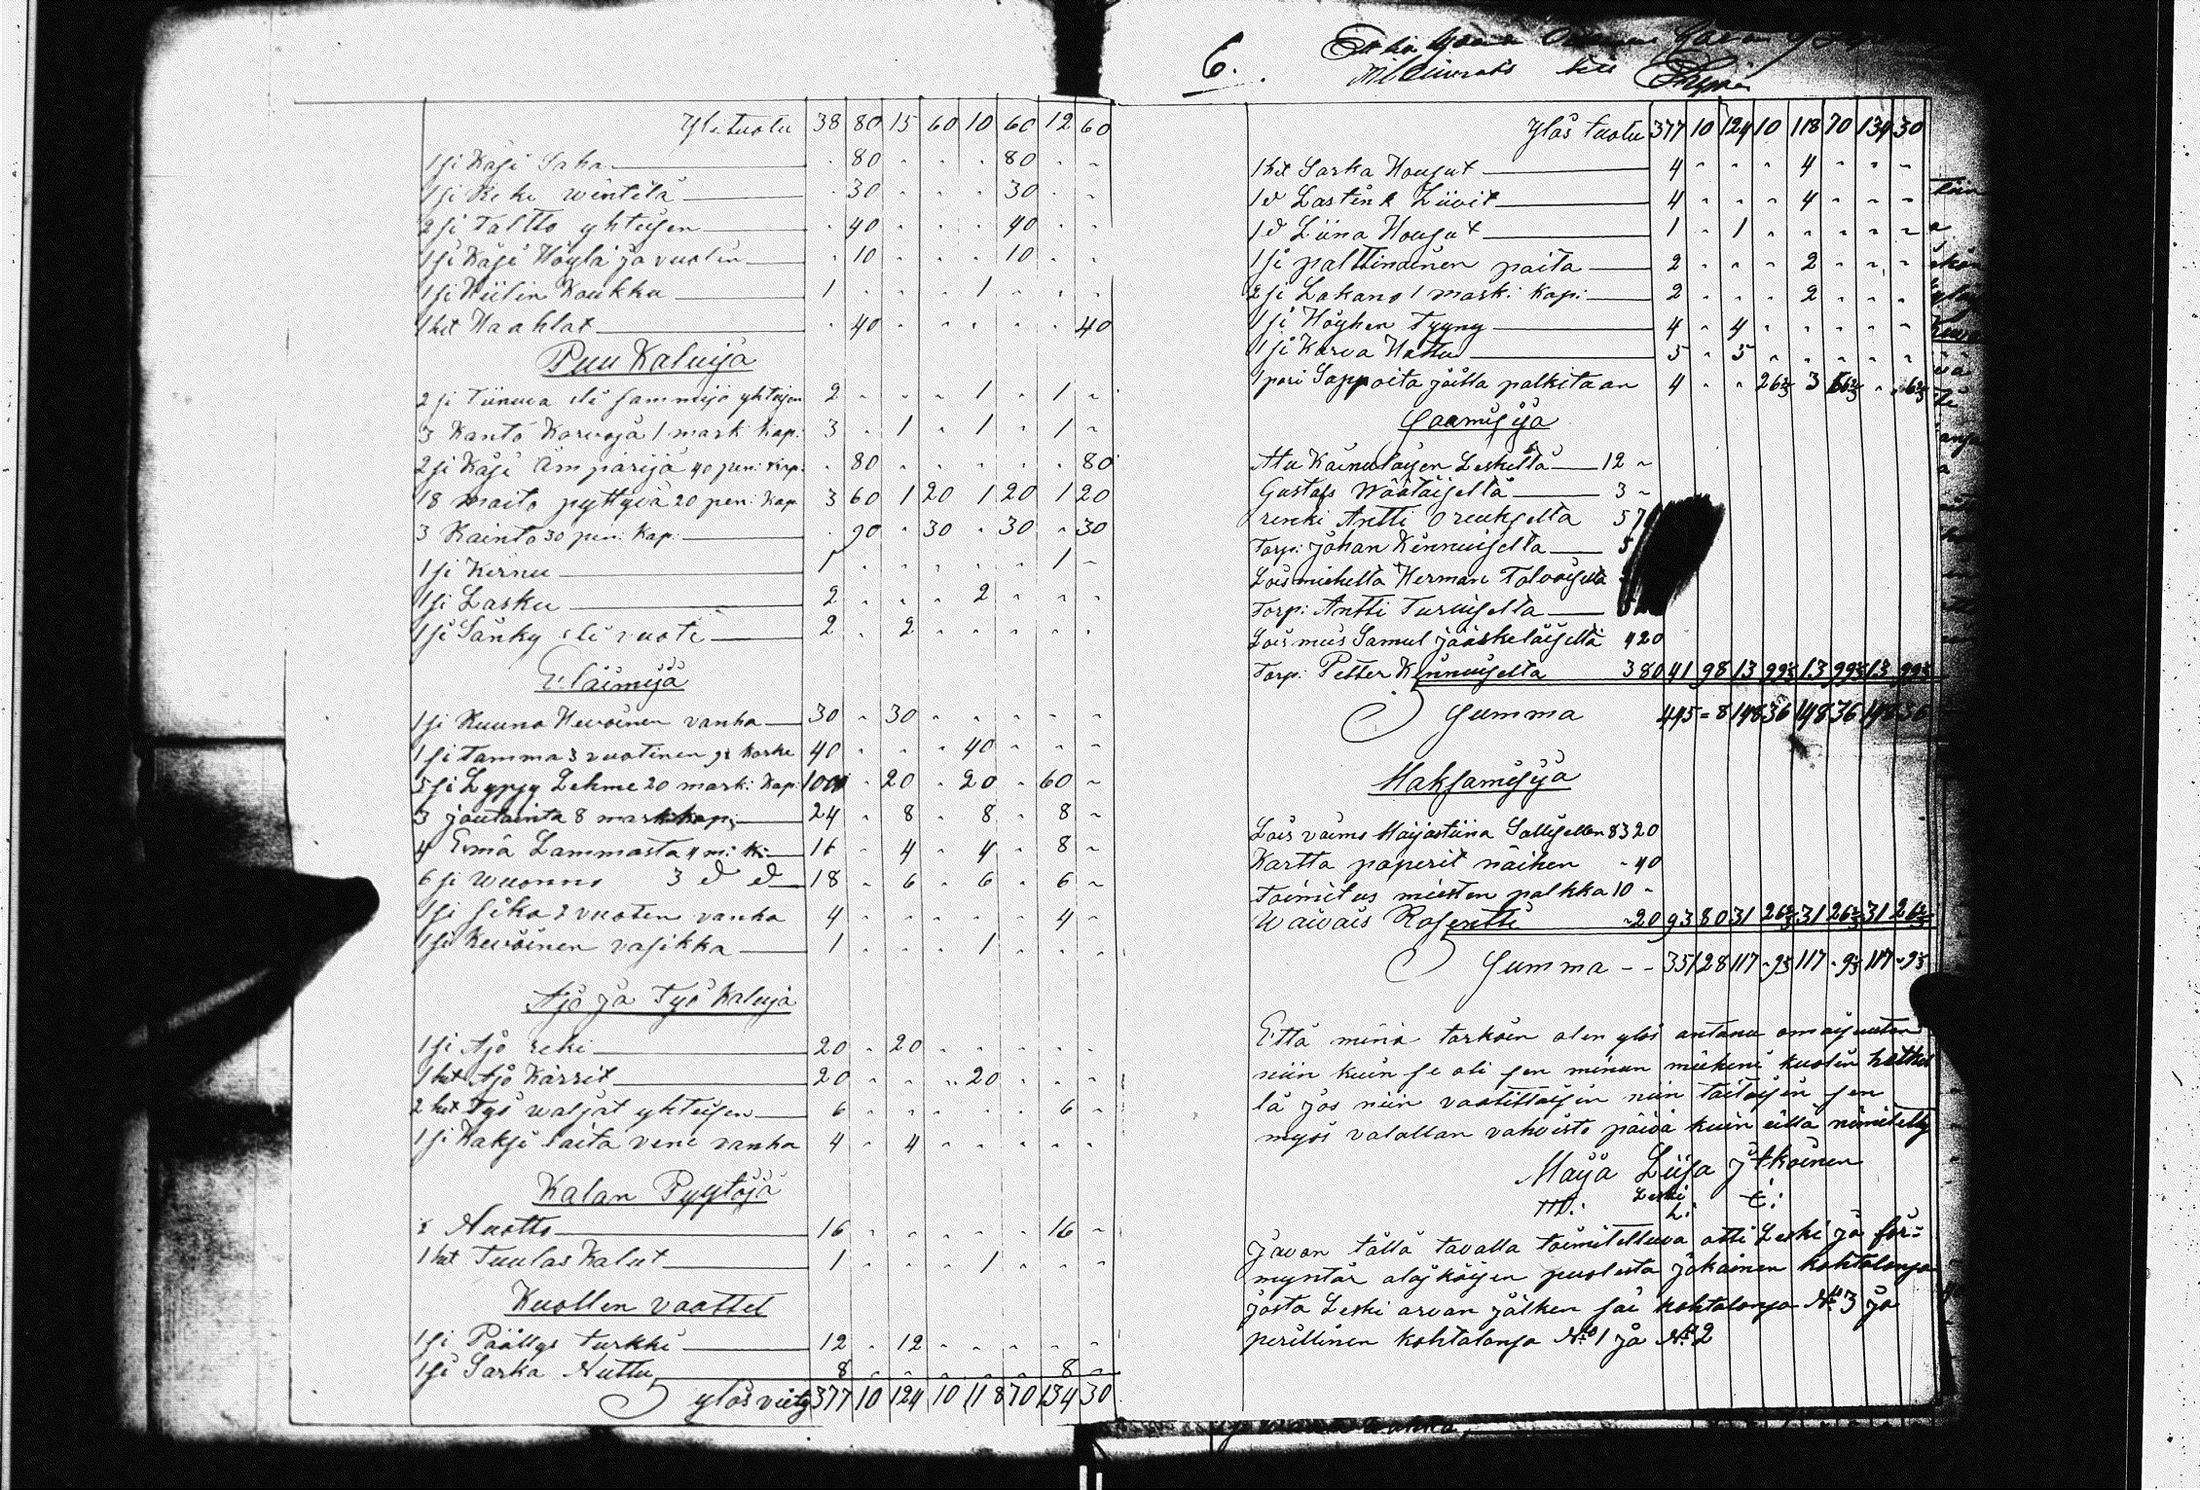 Yletuotu 38 80 15 60 10 60 12 60
1 si Käsi Saha - 80 - - - 80 - -
1 si Reki wintilä - 30 - - - 30 - -
2 si Taltto yhteisen - 40 - - - 40 - -
1 si Käsi Höylä ja vuolin - 10 - - - 10 - -
1 si Hiilin Koukku 1 - - - 1 - - -
1 het Haahlat - 40 - - - - - 40
Puu Kaluija
2 si Tiinua eli sammijo yhteisen 2 - - - 1 - 1 -
3 Kanto Korvoja 1 mark kap: 3 - 1 - 1 - 1 -
2 si Käsi Ämpärijä 40 pen: kap: - 80 - - - - - 80
18 maito pyttyiä 20 pen: kap 3 60 1 20 1 20 1 20
3 Kainto 30 pen: Kap: - 90 - 30 - 30 - 30
1 si Kirnu 1 - - - - - 1 -
1 si Lasku 2 - - - 2 - - -
1 si Sänky eli vuote 2 - 2 - - - - -
Eläimijä
1 si Ruuna Hevoinen vanha 30 - 30 - - - - -
1 si tamma 3 vuotinen 40 - - - 40 - - -
5 si Lypsy Lehme 20 mark: kap: 100 - 20 - 20 - 60 -
3 joutainta 8 mark kap: 24 - 8 - 8 - 8 -
4 Emä Lammasta 4 m: k: 16 - 4 - 4 - 8 -
6 si wuonno 3 d d 18 - 6 - 6 - 6 -
1 si sika 2 vuoten vanha 4 - - - - - 4 -
1 si Hevoinen vasikka 1 - - - 1 - - -
Ajo ja Työ Kaluja
1 si Ajo reki 20 - 20 - - - - -
1 het Ajo Kärrit 20 - - - 20 - - -
2 het Työ waljat yhteisen 6 - - - - - 6 -
1 si Kaksi laita vene vanha 4 - 4 - - - - -
Kalan Pyytöjä
Nuotto 16 - - - - - 16 -
1 het Tuulas Kalut 1 - - - 1 - - -
Kuollen vaattet
1 si Päällys turkki 12 - 12 - - - - -
1 si Sarka Nuttu 8 - - - - - 8 -
ylös viety 377 10 124 10 118 70 134 30
6.
Ylös tuotu 377 10 124 10 118 70 134 30
1 het Sarka Housut 4 - - - 4 - - -
1 d Lastink Liivit 4 - - - 4 - - -
1 d Liina Housut 1 - 1 - - - - -
1 si palttinainen paita 2 - - - 2 - - -
2 si Lakana 1 mark: kap: 2 - - - 2 - - -
1 si Höyhen Tyyny 4 - 4 - - - - -
1 si Karva Hattu 5 - 5 - - - - -
1 pari Sappaita joilla palkitaan 4 - - 26 2/3 3 66 2/3 - 6 2/3
Saamisija
Atu Käinuläisen Leskeltä 12 -
Gustafs Wäätäiseltä 3 -
renki Antti Oreukselta 5 70
Torp: Johan Kinnuiselta 5
Loismiehelta Herman Tolvaiselta
Torp: Antti Turuiselta
Lois mies Samul Jääskeläiseltä 4 20
Torp: Petter Kinnuiselta 3 80 41 98 13 99 1/3 13 99 1/3 13 99 1/3
Summa 445 8 148 36 148 36 148 36
Maksamisija
Lois vaimo Maijastiina Sallisellen 83 20
Kartta paperit näihen - 40
toimitus miesten palkka 10 -
Waivais Rosentti - 20 93 80 31 26 2/3 31 26 2/3 31 26 2/3
Summa - - 351 28 117 - 9 1/3 117 - 9 1/3 117 - 9 1/3
Että minä tarkoin olen ylös antanu omaisuuten
niin kuin se oli sen minun mieheni kuolin hetkel
lä jos niin vaatittaisiin niin taitaisin sen
myös valallan vahvista päivä kuin eillä nimitetty
Maija Liisa Jtkoinen
m: Leski L: t:
Javon tällä tavalla toimitettuva otti Leski ja för=
myntär alaikäisen puolesta jokainen kohtalonsa
josta Leski arvan jälken sai kohtalonsa No 3 ja
perillinen kohtalonsa No 1 ja No 2